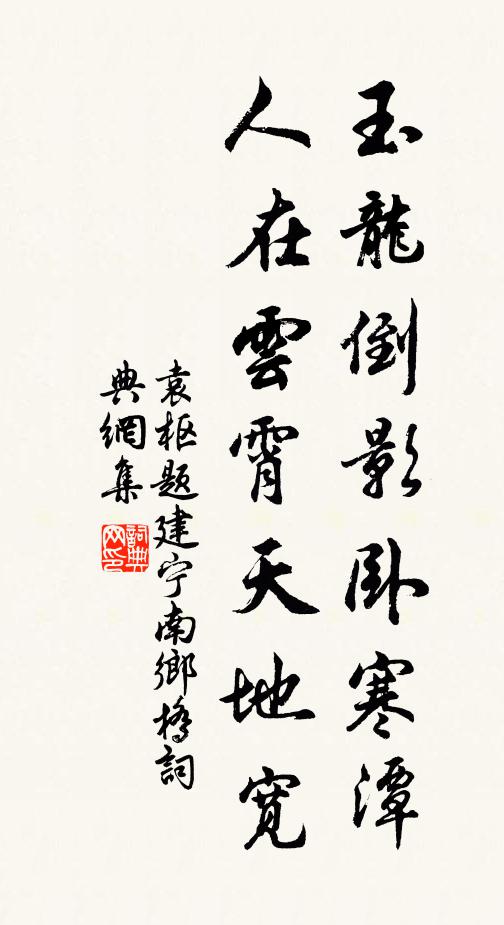 玉龍倒影臥寒潭
人在雲霄天地寬
袁枢题建宁南鄉橋詞
典網集
詞典网印